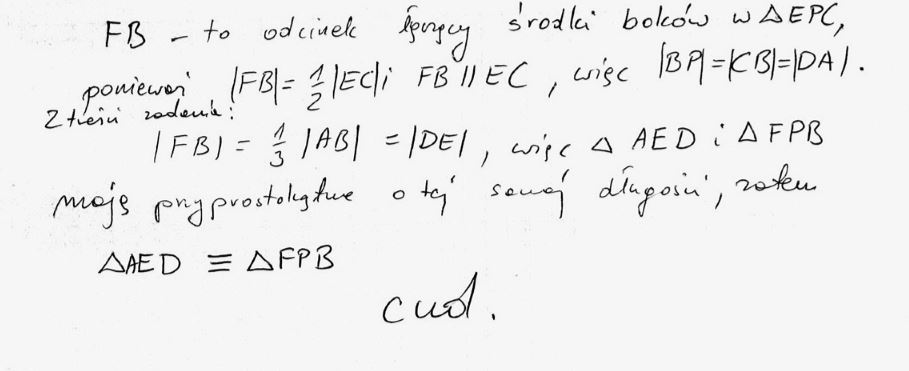 FB – to odcinek łączący środki boków w ΔEPC,
ponieważ |FB| = 1/2 |EC| i FB || EC, więc |BP|=|CB|=|DA|.
Z treści zadania:
|FB| = 1/3 |AB| = |DE|, więc Δ AED i Δ FPB
mają przyprostokątne o tej samej długości, zatem
ΔAED ≡ ΔFPB
cnd.